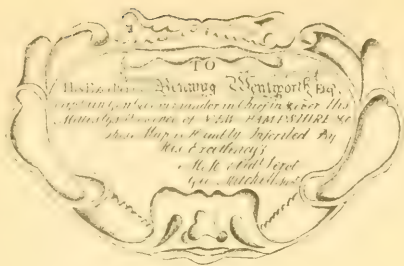 TO
His Excellency Benning Wentworth Esqr.
Captain General Governour & Commander in Chief in & over His
Majesty's Province of NEW HAMPSHIRE &c
these Map is Humbly Inscribed By
His Excellency's
M.H. Servt
Geo Mitchell